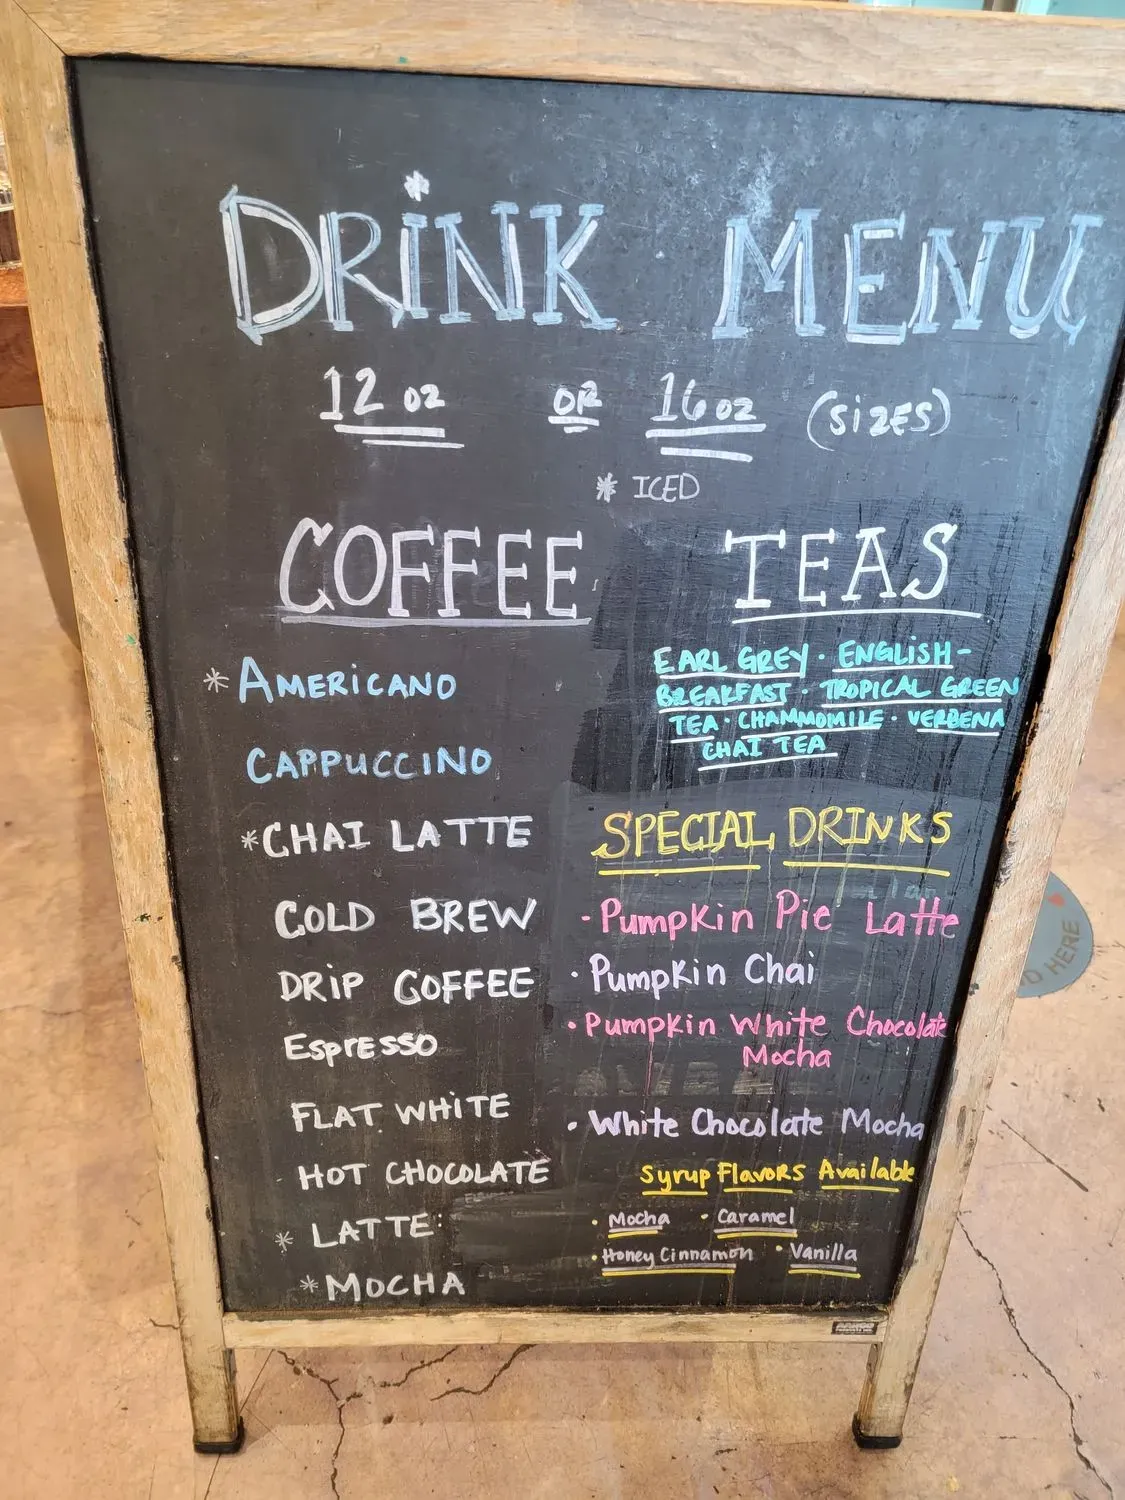 DRiNK MENU
12 oz OR 16 oz (SiZES)
* ICED
COFFEE
* AMERiCANO
CAPPUCCINO
*CHAI LATTE
COLD BREW
DRiP COFFEE
EspRESSO
FLAT WHITE
HOT CHOCOLATE
* LATTE:
* MOCHA
TEAS
EARL GREY · ENGLISH-
BREAKFAST · TROPICAL GREEN
TEA · CHAMMOMILE · VERBENA
CHAI TEA
SPECIAL DRINKS
- Pumpkin Pie Latte
· Pumpkin Chai
· Pumpkin White Chocolate
Mocha
· White Chocolate Mocha
Syrup FlavoRS Available
· Mocha · Caramel
· Honey Cinnamon · Vanilla
HERE